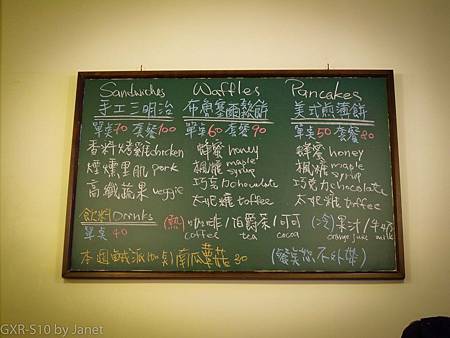 Sandwiches
手工三明治
單點70 套餐100
香料烤雞 chicken
煙燻里肌 pork
高纖蔬果 veggie
Waffles
布魯塞爾鬆餅
單點60 套餐90
蜂蜜 honey
楓糖 maple syrup
巧克力 chocolate
太妃糖 toffee
Pancakes
美式煎薄餅
單點50 套餐80
蜂蜜 honey
楓糖 maple syrup
巧克力 chocolate
太妃糖 toffee
飲料 Drinks
單點 40
(熱) 咖啡/伯爵茶/可可 (冷) 果汁/牛奶
coffee tea cocoa orange juice milk
本週鹹派 南瓜蘑菇 80
(餐點恕不外帶)
GXR-S10 by Janet